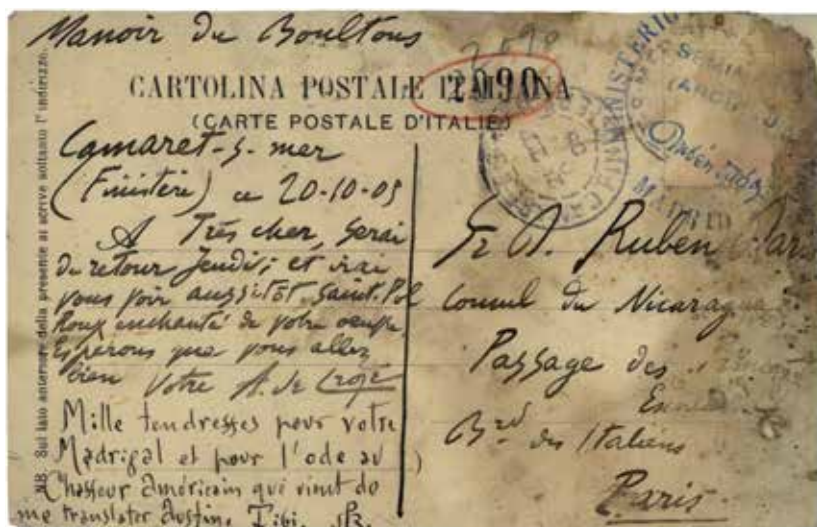 Manoir du Boultous
2090
CARTOLINA POSTALE ITALIANA
2090
(CARTE POSTALE D'ITALIE)
NB. Sul lato anteriore della presente si scrive soltanto l'indirizzo.
Camaret-s-mer
(Finistère) ce 20-10-05
Très cher, serai
de retour Jeudi; et irai
vous voir aussitôt. Saint-Pol
Roux enchanté de votre oeuvre.
Espérons que vous allez
bien Votre A. de
Mille tendresses pour votre
Madrigal et pour l'ode au
Chasseur Américain que vient de
me translater Austin.
MINISTERIO
SEMIN
(ARCHIVO
MADRID
Sr D. Ruben Dario
Consul du Nicaragua
Passage des
Bd des Italiens
Paris